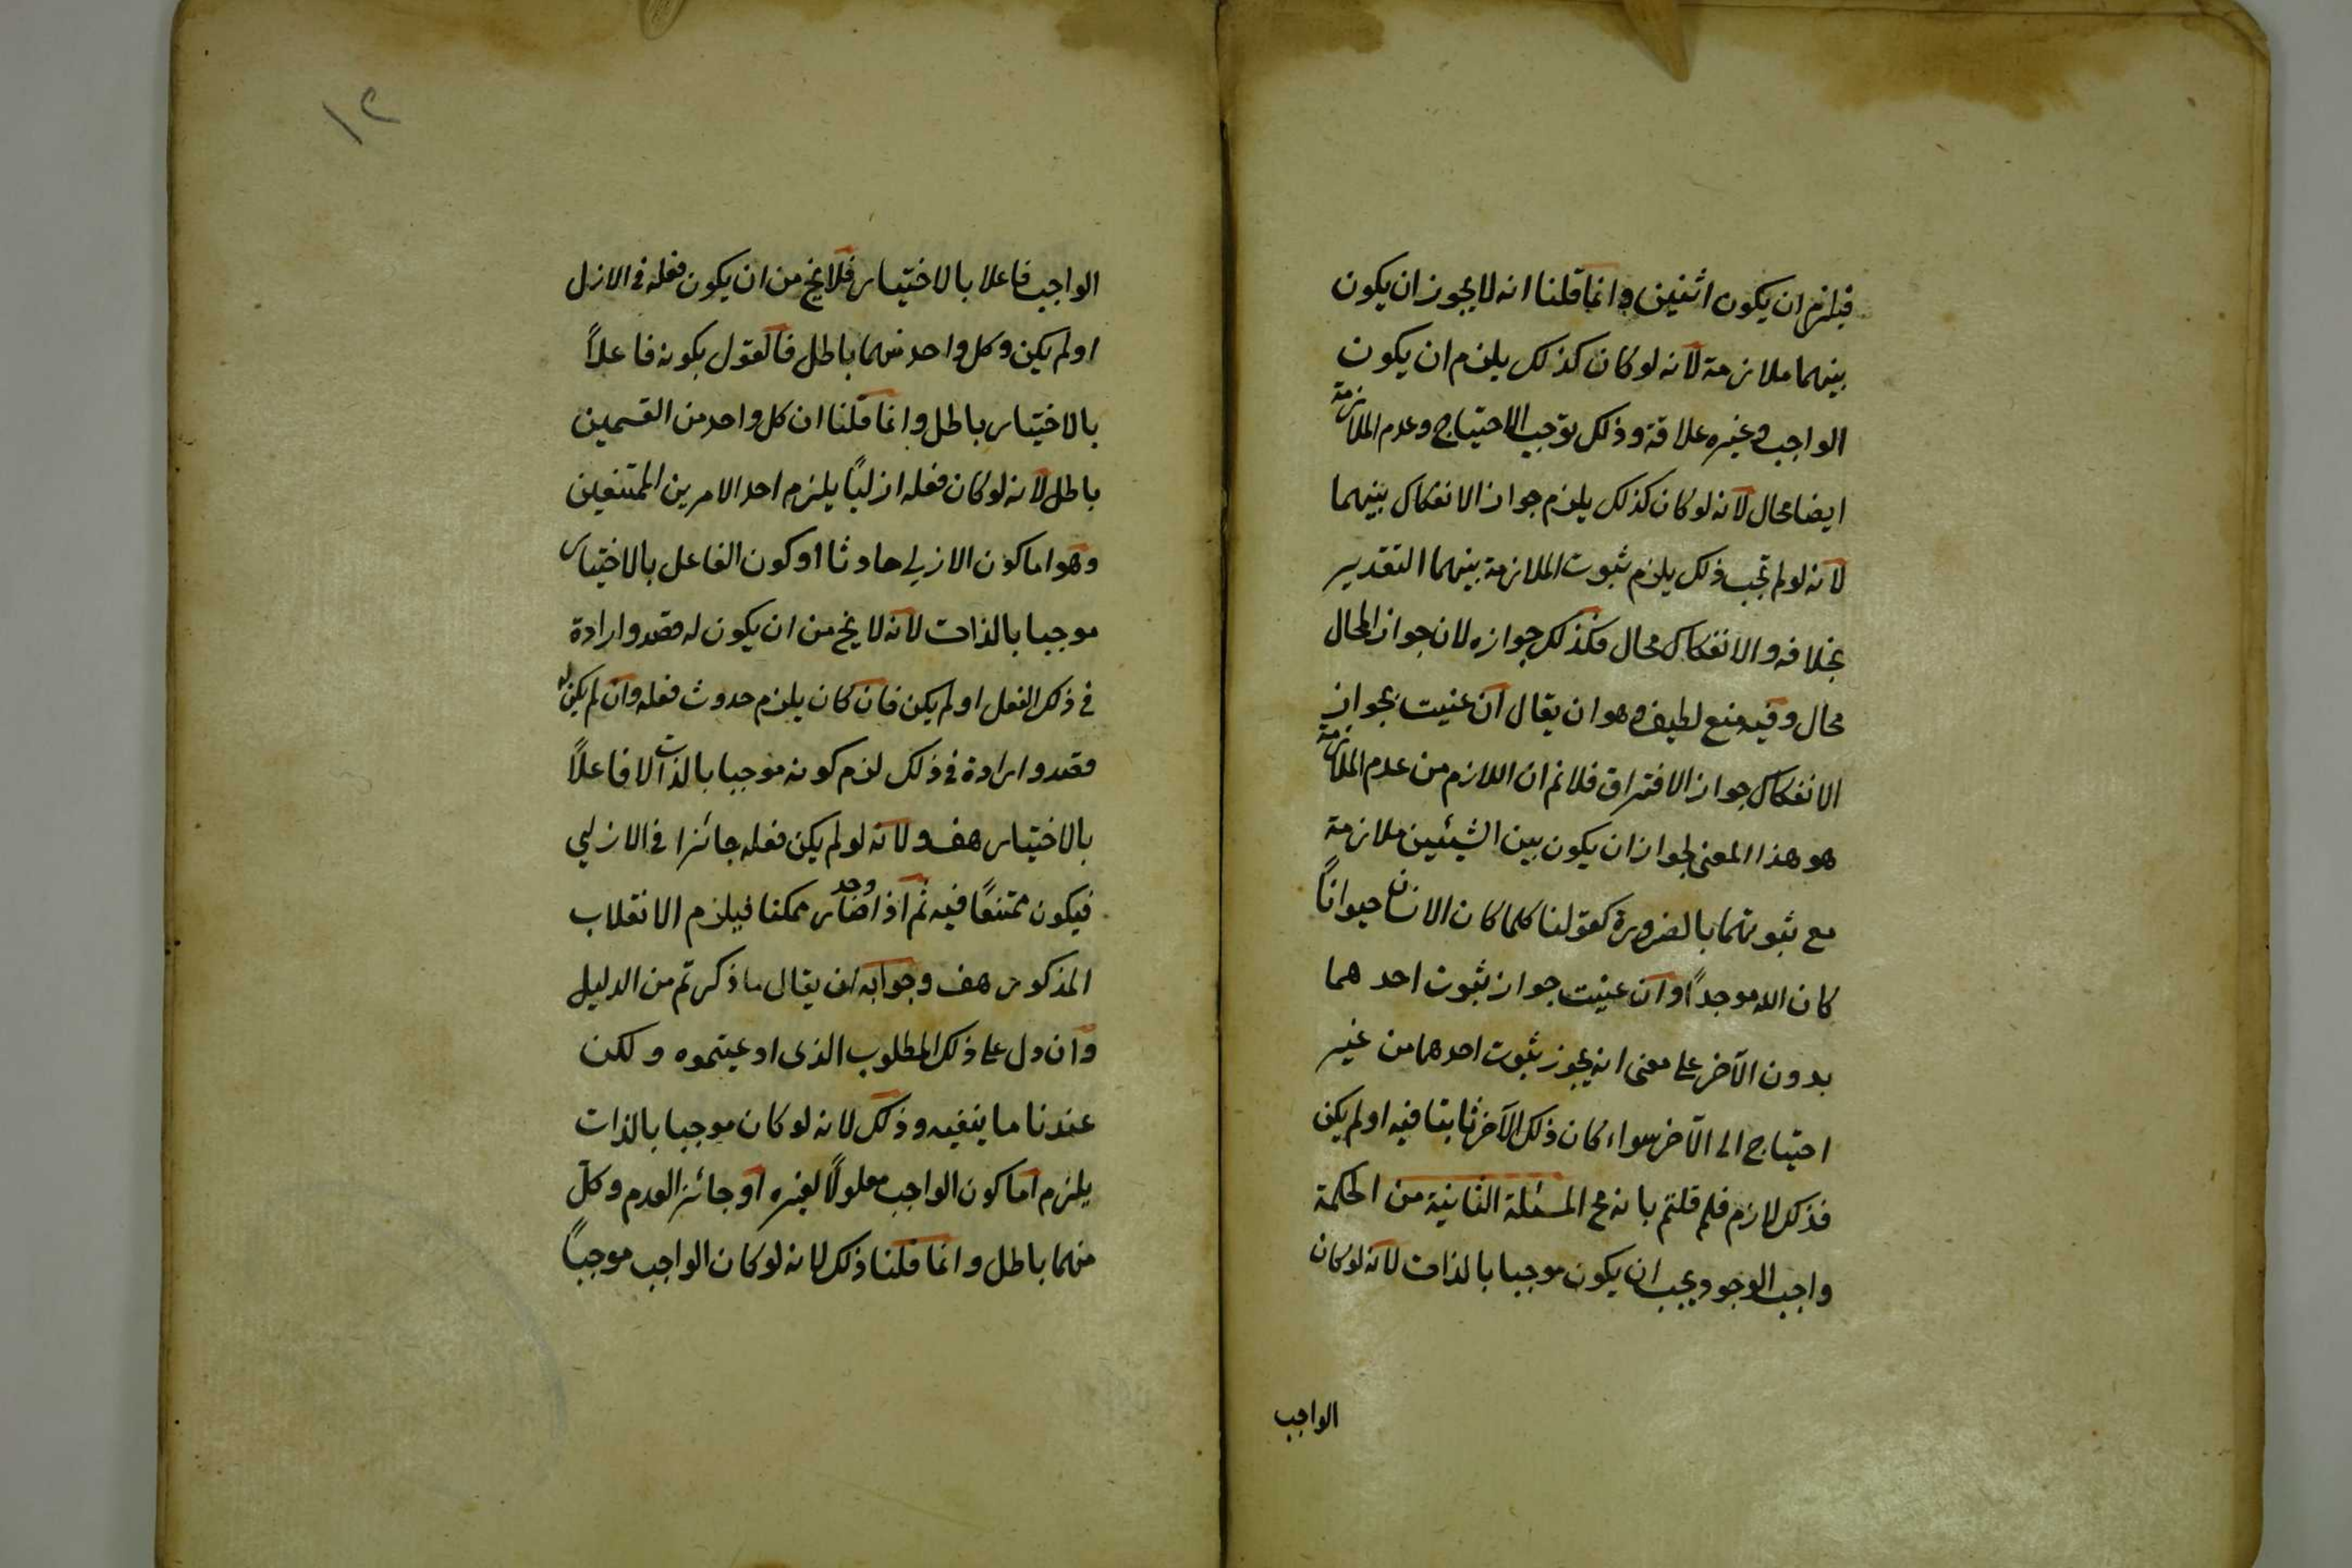 فيلزم ان يكون اثنين وانما قلنا انه لا يجوز ان يكون
بينهما ملازمة لانه لو كان كذلك يلزم ان يكون
الواجب وغيره علاقة وذلك توجب الاحتياج وعدم الملازمة
ايضا محال لانه لو كان كذلك يلزم جواز الانفكاك بينهما
لانه لو لم تجب ذلك يلزم ثبوت الملازمة بينهما التقدير
بخلافه والانفكاك محال فكذلك جوازه لان جواز المحال
محال وفيه منع لطيف وهو ان يقال ان عنيت بجواز
الانفكاك جواز الافتراق فلانم ان اللازم من عدم الملازمة
هو هذا المعنى لجواز ان يكون بين الشيئين ملازمة
مع ثبوتهما بالضرورة كقولنا كلما كان الانسان حيوانًا
كان الله موجدًا وان عنيت جواز ثبوت احدهما
بدون الآخر على معنى انه يجوز ثبوت احدهما من غير
احتياج الى الآخر سواء كان ذلك الآخر ثابتا فيه او لم يكن
فذلك لازم فلم قلتم بانه مح المسئلة الثانية من الحكمة
واجب الوجود يجب ان يكون موجبا بالذات لانه لو كان
الواجب
١٢
الواجب فاعلا بالاختيار فلا يخ من ان يكون فعله في الازل
او لم يكن وكل واحد منهما باطل فالقول بكونه فاعلاً
بالاختيار باطل وانما قلنا ان كل واحد من القسمين
باطل لانه لو كان فعله ازليًا يلزم احد الامرين الممتنعين
وهو اما كون الازلي حادثا او كون الفاعل بالاختيار
موجبا بالذات لانه لا يخ من ان يكون له قصد وارادة
في ذلك الفعل او لم يكن فان كان يلزم حدوث فعله وان لم يكن له
قصد وارادة في ذلك لزم كونه موجبا بالذات لا فاعلاً
بالاختيار هف ولانه لو لم يكن فعله جائزا في الازلي
فيكون ممتنعًا فيه ثم اذا وجد صار ممكنا فيلزم الانقلاب
المذكور هف وجوابه ان يقال ما ذكرتم من الدليل
وان دل على ذلك المطلوب الذى ادعيتموه ولكن
عندنا ما ينفيه وذلك لانه لو كان موجبا بالذات
يلزم اما كون الواجب معلولاً لغيره او جائز العدم وكل
منهما باطل وانما قلنا ذلك لانه لو كان الواجب موجباً